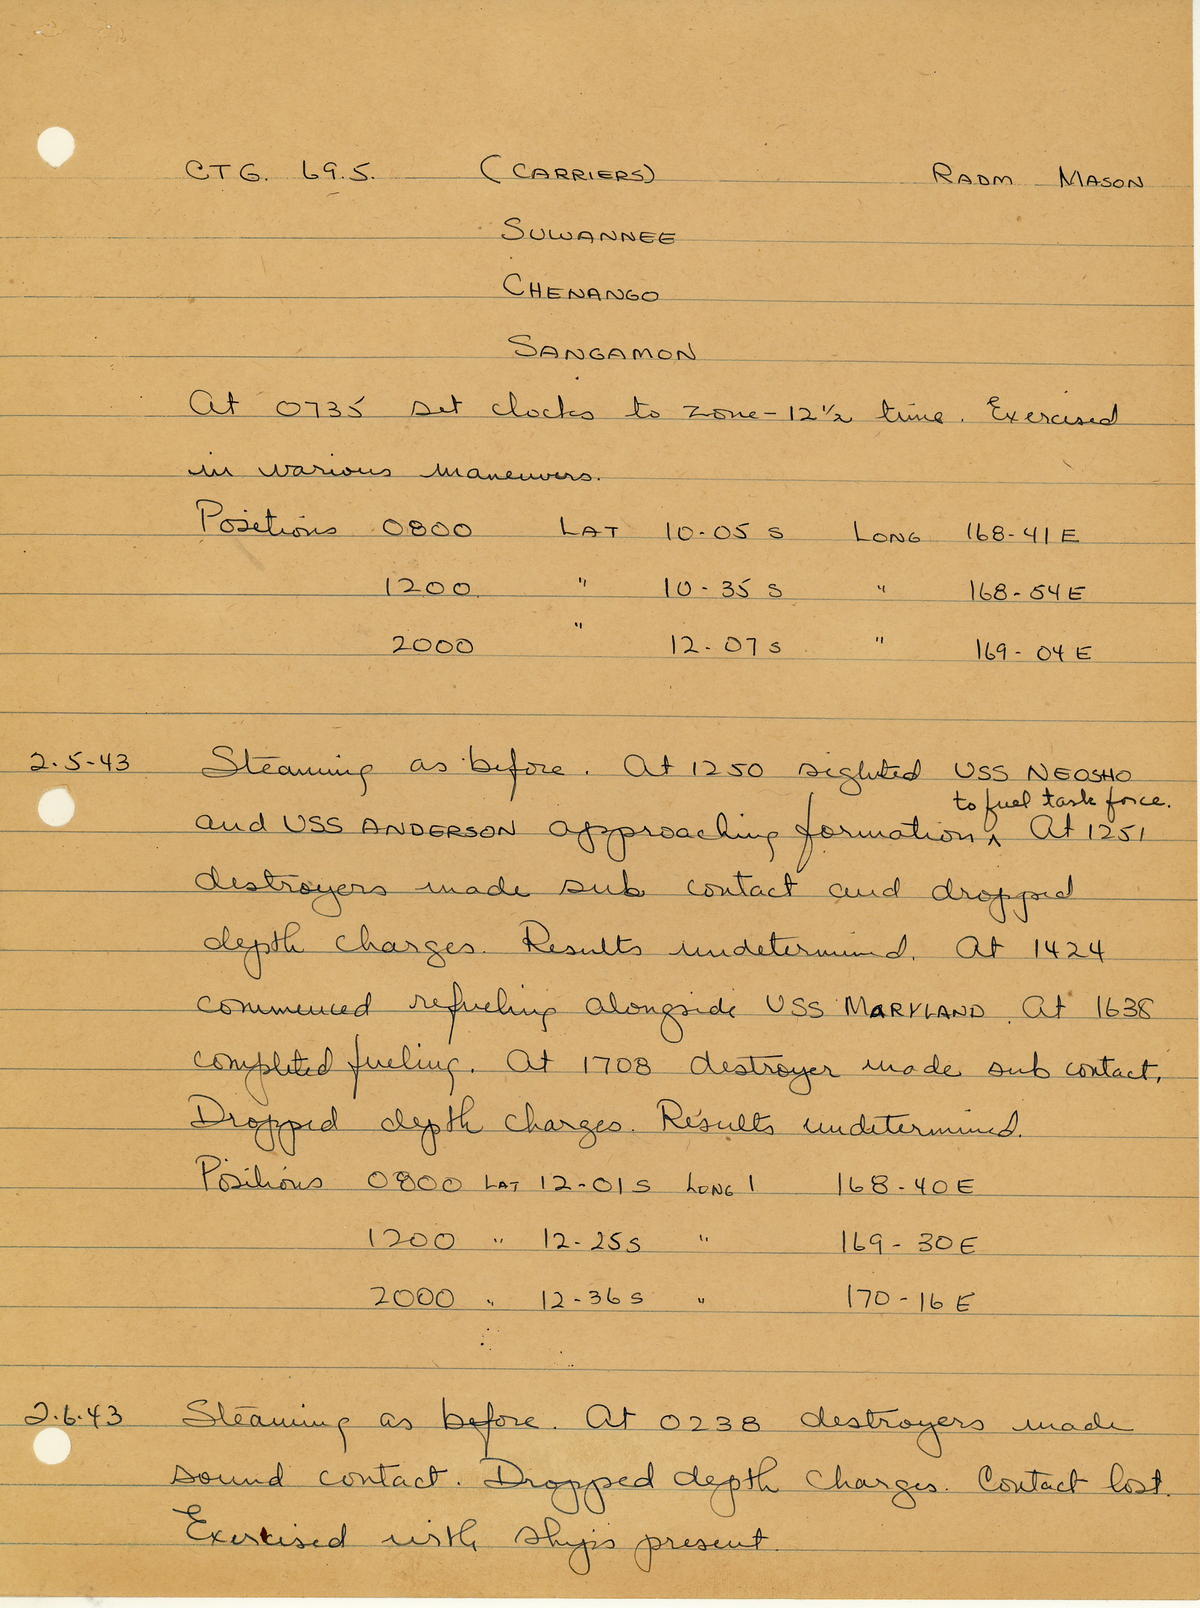 CTG. 69.5. (CARRIERS) RADM MASON
SUWANNEE
CHENANGO
SANGAMON
At 0735 set clocks to zone -12½ time. Exercised
in various maneuvers.
Positions 0800 LAT 10-05 S LONG 168-41 E
1200 " 10-35 S " 168-54 E
2000 " 12-07 S " 169-04 E
2-5-43 Steaming as before. At 1250 sighted USS NEOSHO
to fuel task force.
and USS ANDERSON approaching formation ^. At 1251
destroyers made sub contact and dropped
depth charges. Results undetermined. At 1424
commenced refueling alongside USS MARYLAND. At 1638
completed fueling. At 1708 destroyer made sub contact.
Dropped depth charges. Results undetermined.
Positions 0800 LAT 12-01 S LONG 168-40 E
1200 " 12-25 S " 169-30 E
2000 " 12-36 S " 170-16 E
2-6-43 Steaming as before. At 0238 destroyers made
sound contact. Dropped depth charges. Contact lost.
Exercised with ships present.